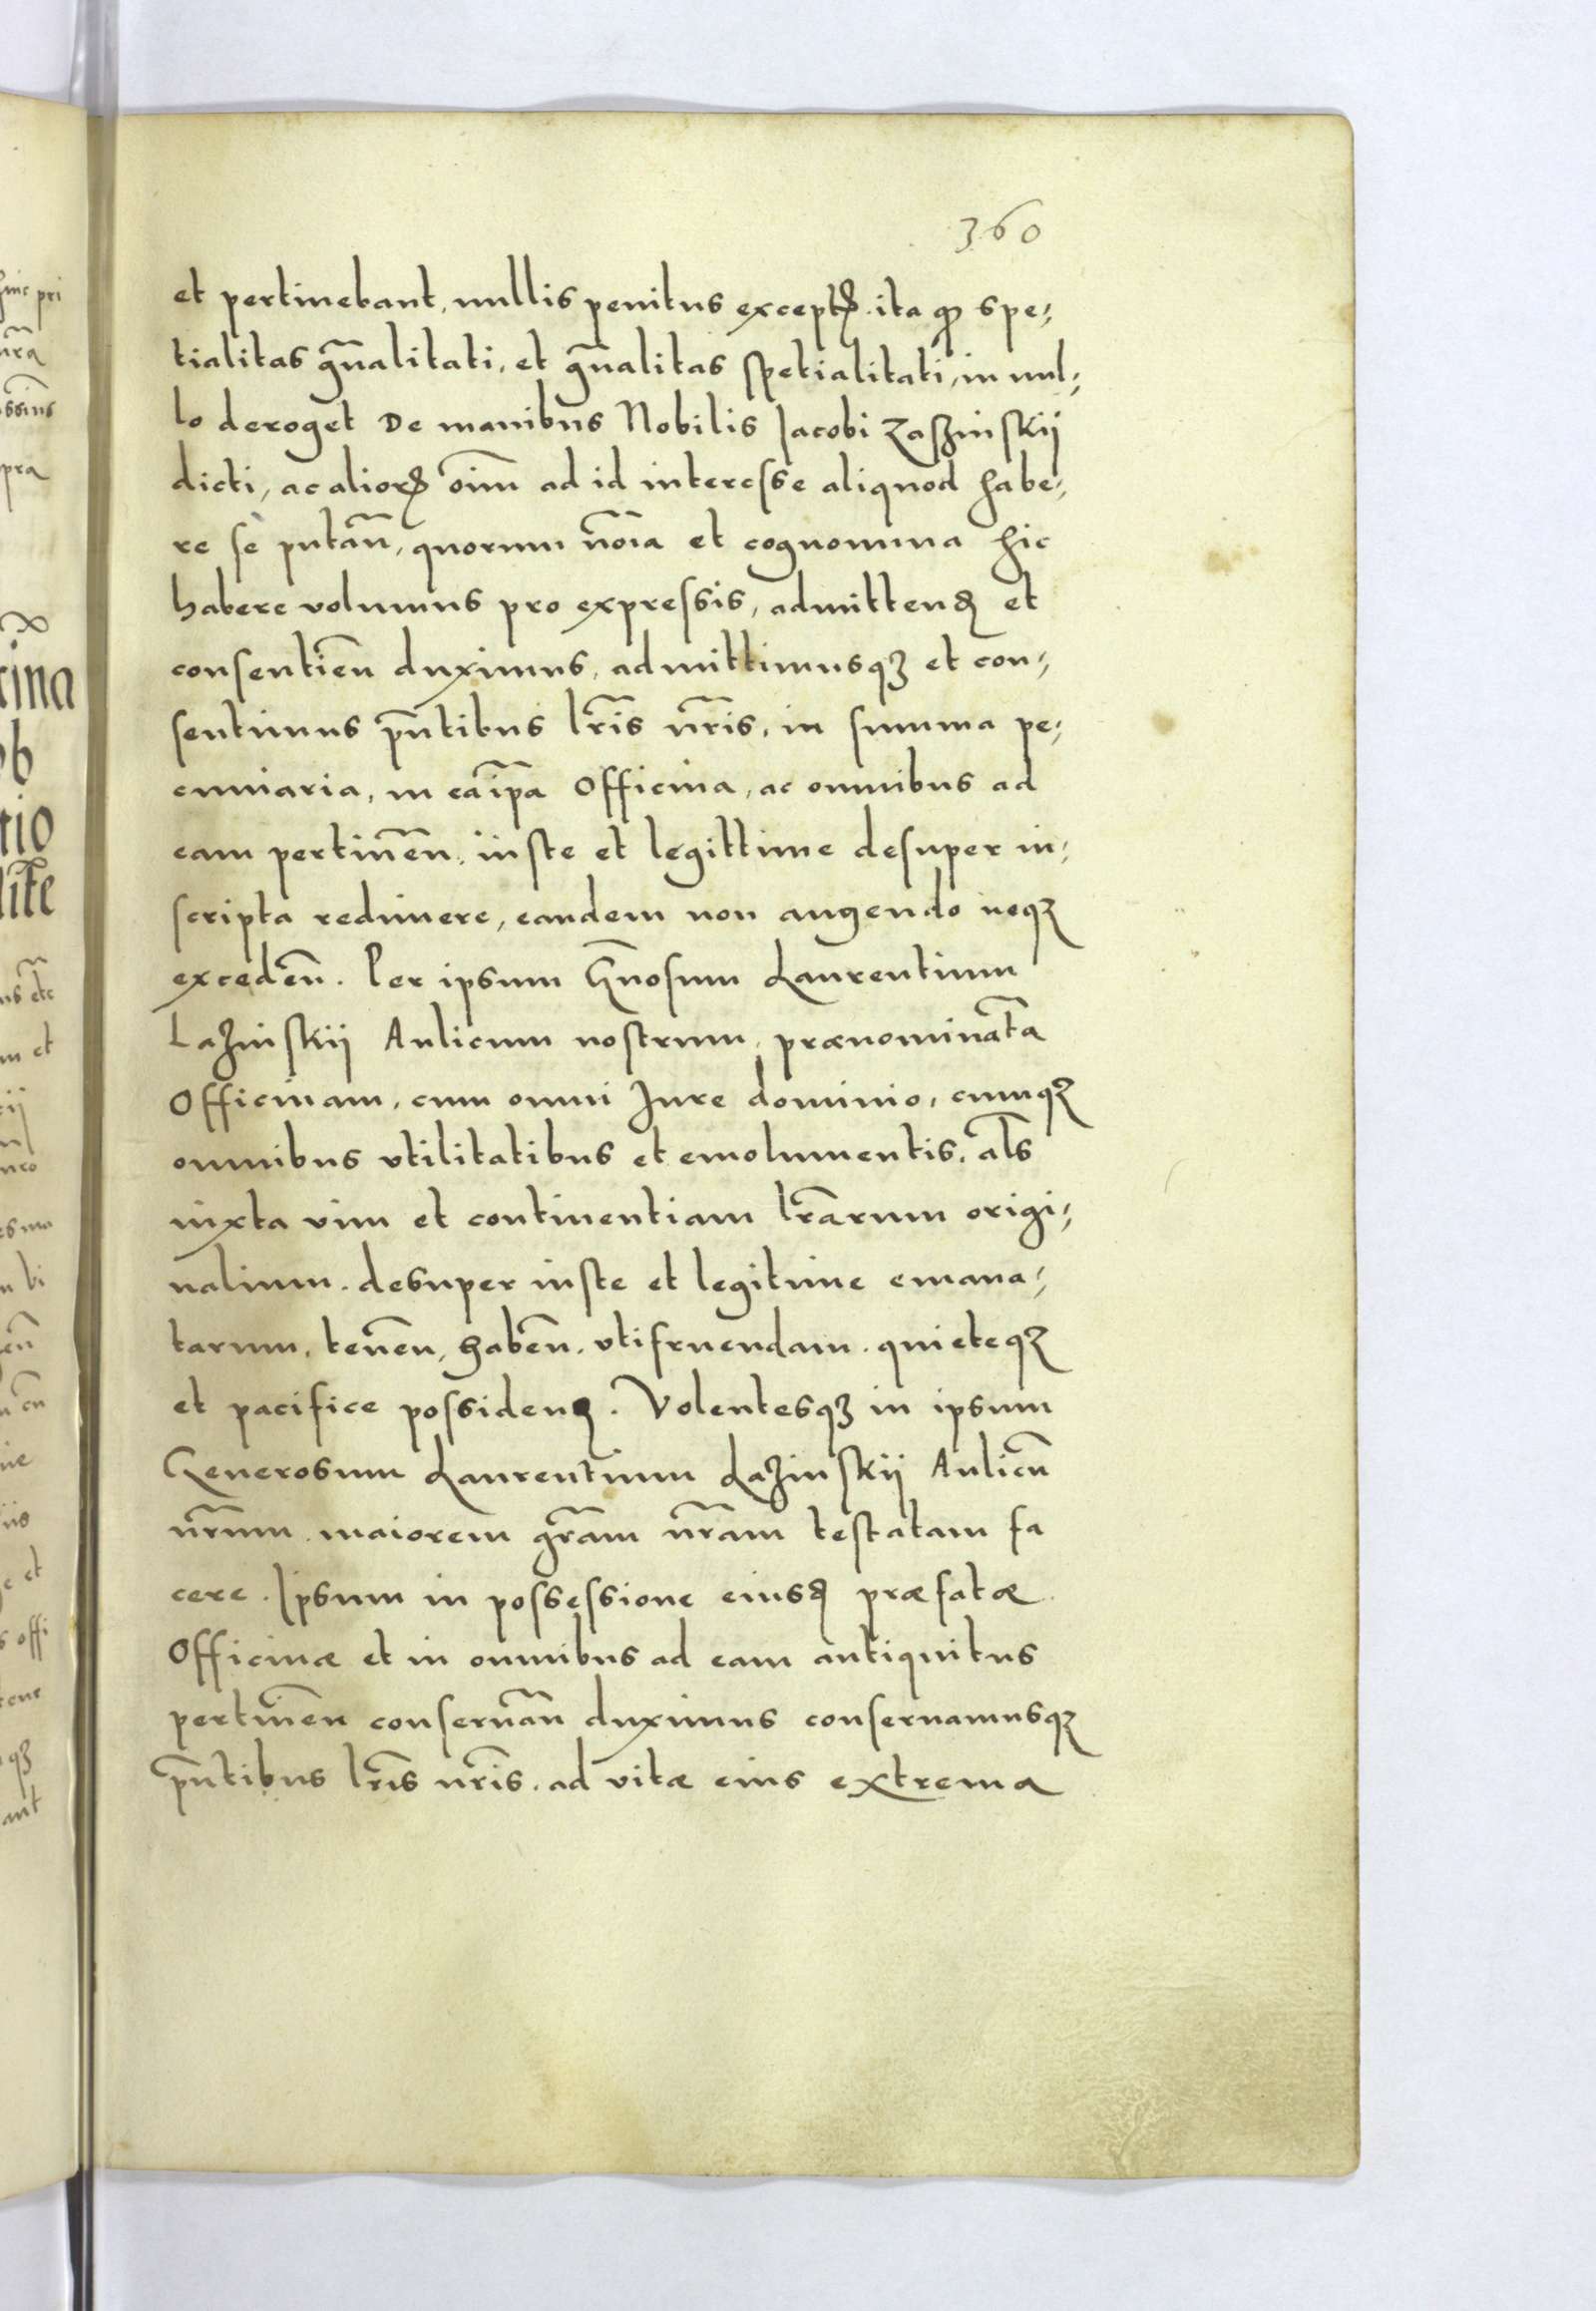 360
et pertinebant, nullis penitus exceptꝭ. ita ꝙ spe⸗
tialitas gn̄alitati, et gn̄alitas spetialitati, in nul⸗
lo deroget De manibus Nobilis Jacobi Zaszinskij
dicti, ac alioꝝ oīm ad id interesse aliquod habe⸗
re se putan̄, quorum nōia et cognomina hic
habere volumus pro expressis, admittenꝺ et
consentien̄ duximus, admittimusqꝫ et con⸗
sentimus pn̄tibus lr̄is nr̄is, in summa pe⸗
cuniaria, in ea ip̄a Officina, ac omnibus ad
eam pertinen̄. iuste et legittime desuper in⸗
scripta redimere, eandem non augendo neqꝫ
exceden̄. Per ipsum Gn̄osum Laurentium
Lazinskij Aulicum nostrum, prænominatā
Officinam, cum omni Jure dominio, cumqꝫ
omnibus vtilitatibus et emolumentis, al̄s
iuxta vim et continentiam lr̄arum origi⸗
nalium. desuper iuste et legitime emana⸗
tarum, tenen̄, haben̄. vtifruendam. quieteqꝫ
et pacifice possidenꝺ. Volentesqꝫ in ipsum
Generosum Laurentium Lazinskij Aulicū
nr̄um maiorem gr̄am nr̄am testatam fa
cere. Ipsum in possessione eiusꝺ præfatæ
Officinæ et in omnibus ad eam antiquitus
pertinen̄ conseruan̄ duximus conseruamusqꝫ
pn̄tibus lr̄is nr̄is. ad vitæ eius extrema